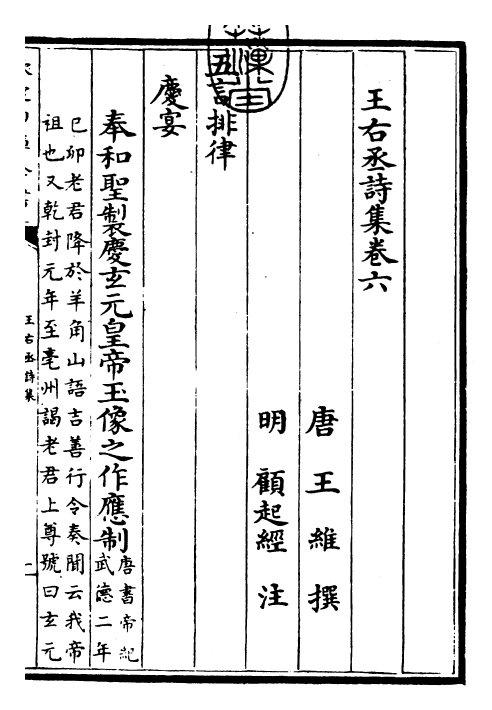 王右丞詩集卷六
唐 王維 撰
明 顧起經 注
五言排律
慶宴
奉和聖製慶玄元皇帝玉像之作應制
唐書帝紀
武德二年
已卯老君降於羊角山語吉善行令奏聞云我帝
祖也又乾封元年至亳州謁老君上尊號曰玄元
王右丞詩集